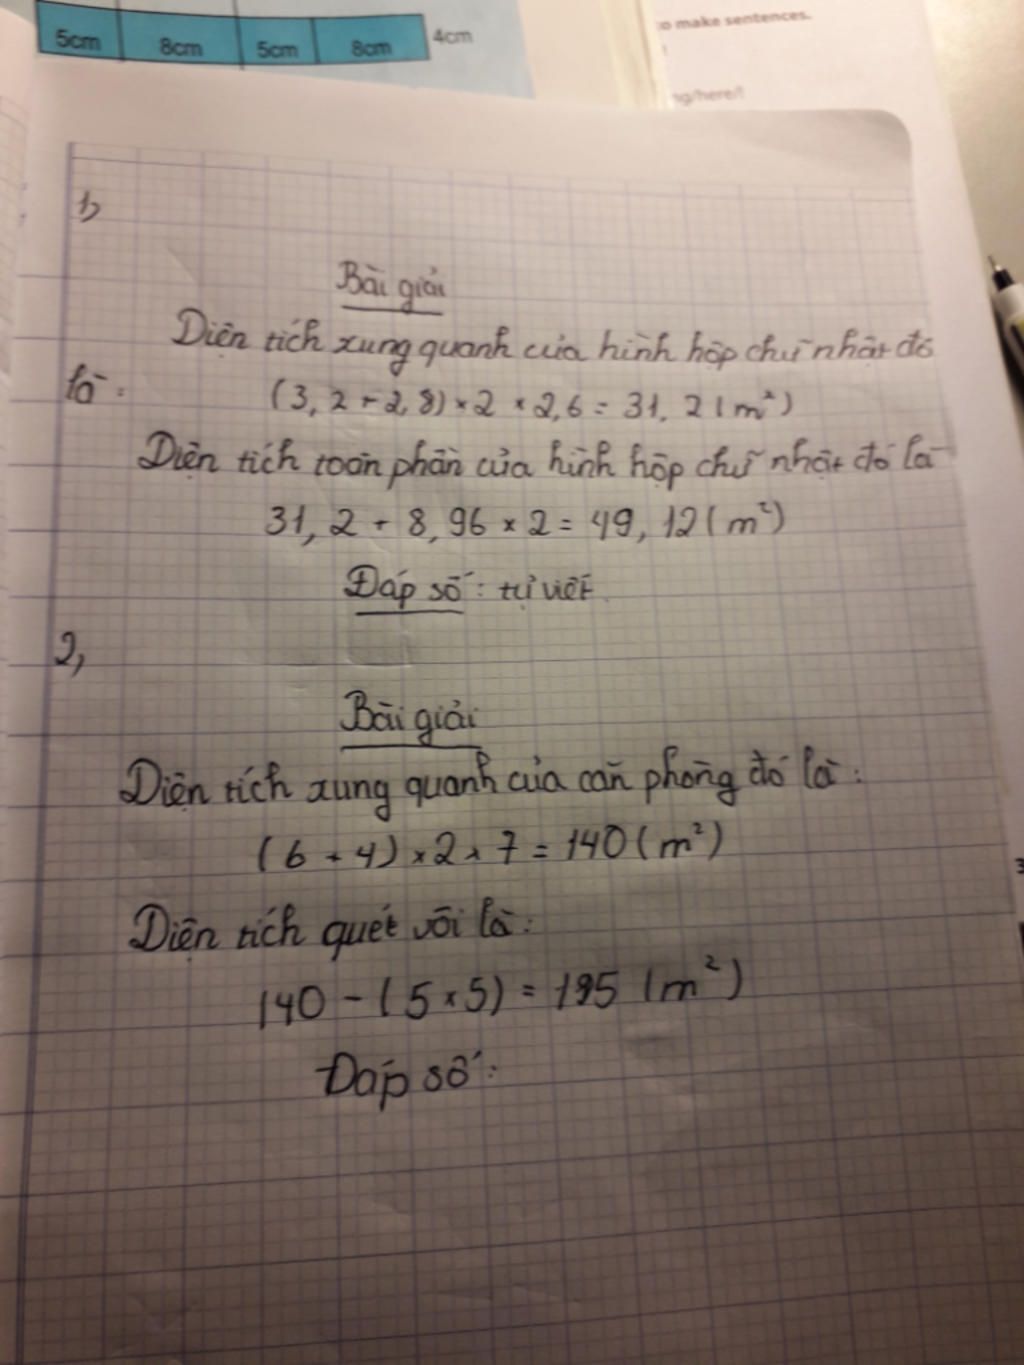 5cm 8cm 5cm 8cm 4cm
to make sentences.
ng/here/!
1,
Bài giải
Diện tích xung quanh của hình hộp chữ nhật đó
là:
(3,2 + 2,8) × 2 × 2,6 = 31,2 (m²)
Diện tích toàn phần của hình hộp chữ nhật đó là
31,2 + 8,96 × 2 = 49,12 (m²)
Đáp số: tự viết
2,
Bài giải
Diện tích xung quanh của căn phòng đó là:
(6 + 4) × 2 × 7 = 140 (m²)
Diện tích quét vôi là:
140 - (5 × 5) = 195 (m²)
Đáp số: